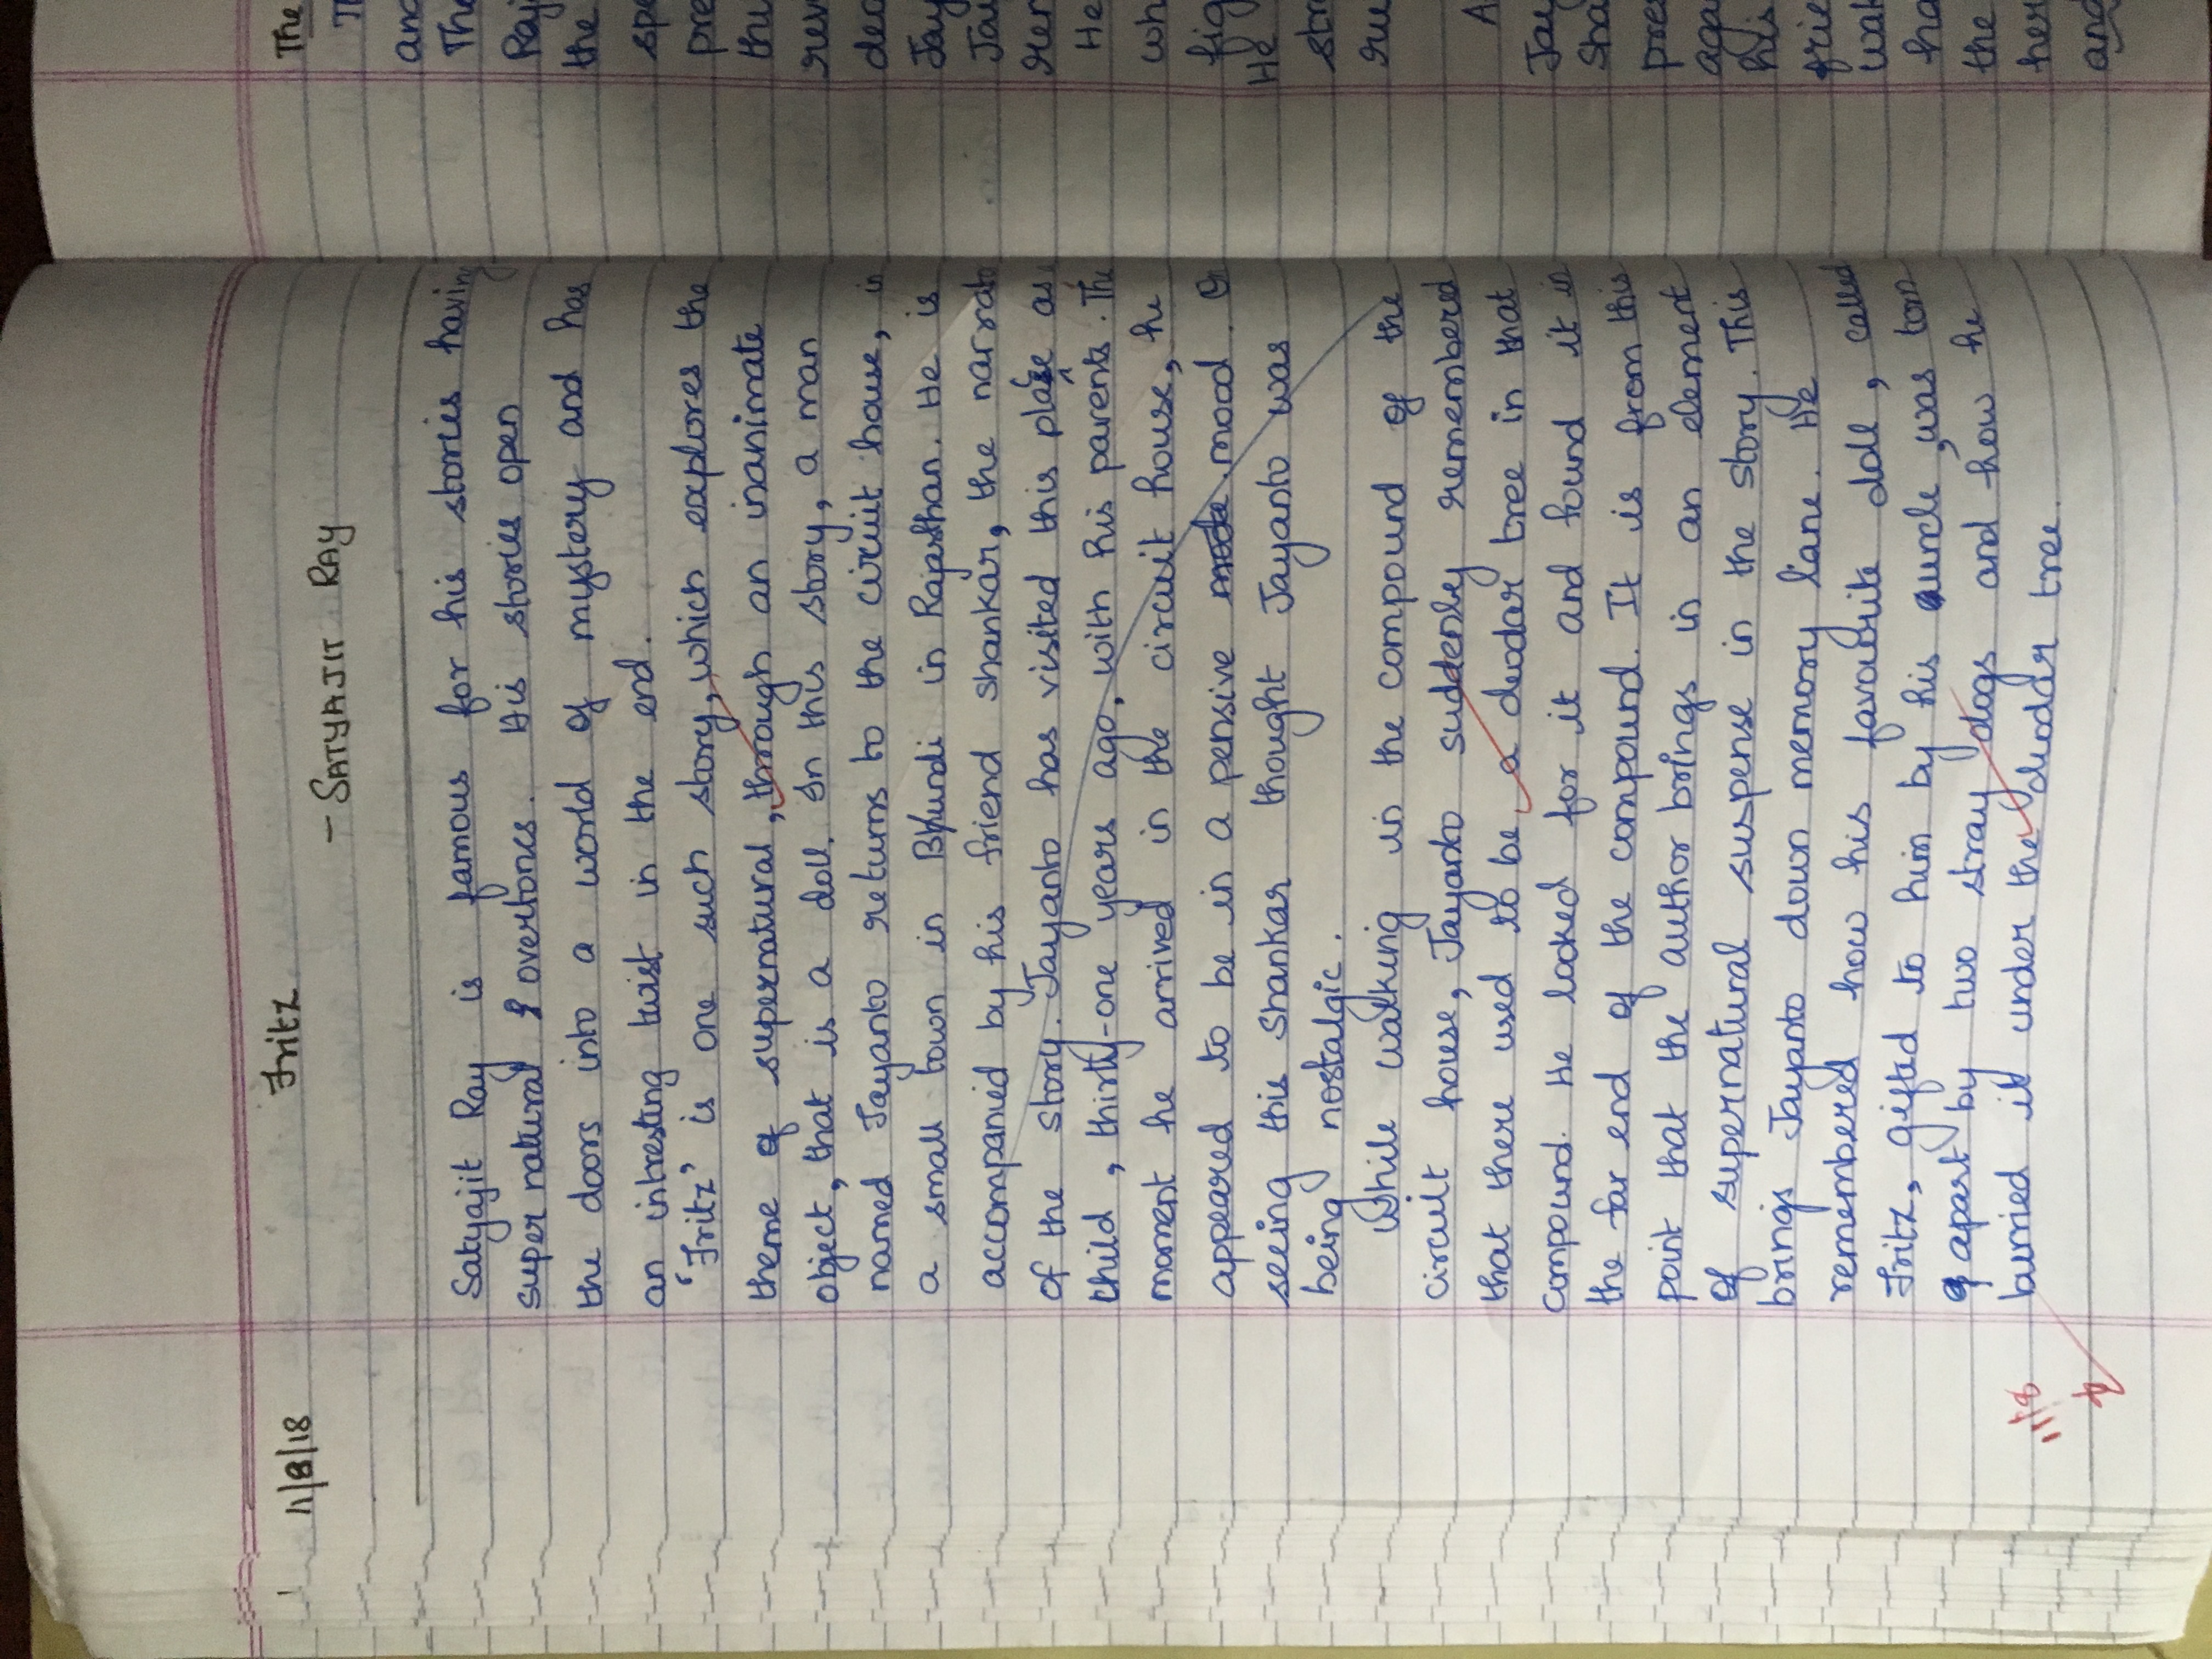 11/8/18
Fritz
- SATYAJIT RAY
Satyajit Ray is famous for his stories having
super natural overtones. His stories open
the doors into a world of mystery and has
an intresting twist in the end.
'Fritz' is one such story, which explores the
theme of supernatural, through an inanimate
object, that is a doll. In this story, a man
named Jayanto returns to the circuit house, in
a small town in Bundi in Rajasthan. He is
accompanied by his friend Shankar, the narrato
of the story. Jayanto has visited this place as
child, thirty-one years ago, with his parents. The
moment he arrived in the circuit house, he
appeared to be in a pensive mood. On
seeing this Shankar thought Jayanto was
being nostalgic.
While walking in the compound of the
circuit house, Jayanto suddenly remembered
that there used to be a deodar tree in that
compound. He looked for it and found it in
the far end of the compound. It is from this
point that the author brings in an element
of supernatural suspense in the story. This
brings Jayanto down memory lane. He
remembered how his favourite doll, called
Fritz, gifted to him by his uncle, was torn
apart by two stray dogs and how he
burried it under the deodar tree.
11/8
The
and
The
Raj
the
spe
pre
thu
rev
dec
Jay
Jay
rer
He
wh
fig
He
str
ru
A
Jay
Sha
pre
aga
his
frie
wal
ha
the
her
and